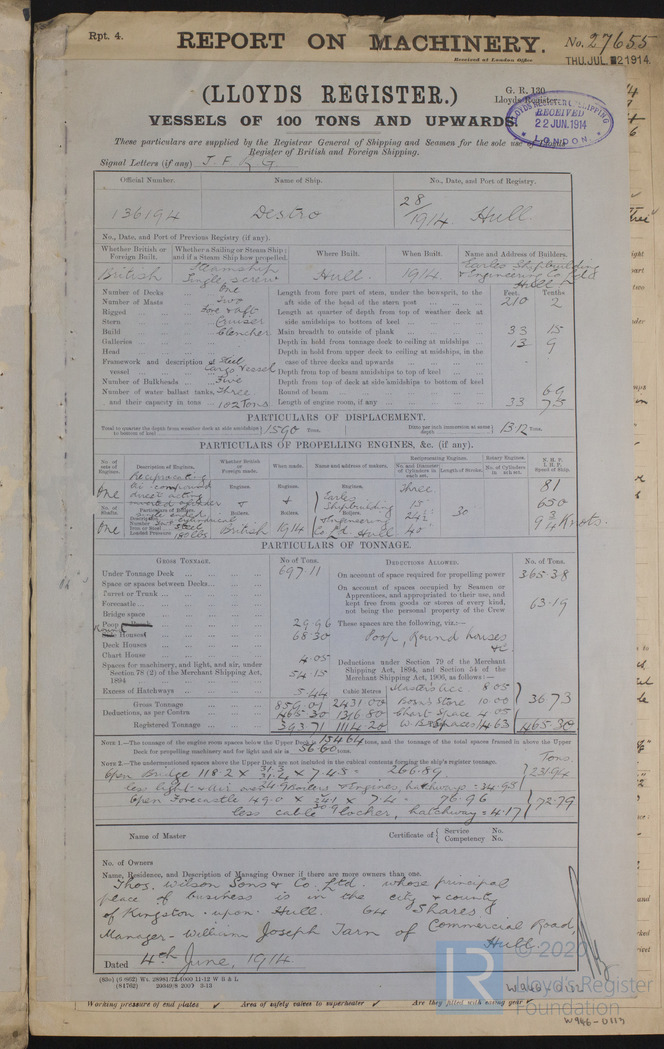 Rpt. 4.
REPORT ON MACHINERY.
No. 27655
Received at London Office
THU. JUL. 2 1914
G. R. 130
Lloyds Register
(LLOYDS REGISTER.)
LLOYDS REGISTER OF SHIPPING
RECEIVED
22 JUN. 1914
LONDON.
VESSELS OF 100 TONS AND UPWARDS.
These particulars are supplied by the Registrar General of Shipping and Seamen for the sole use of Lloyds
Register of British and Foreign Shipping.
Signal Letters (if any) J. F. K. G.
Official Number. Name of Ship. No., Date, and Port of Registry.
136194 Destro 28/1914 Hull.
No., Date, and Port of Previous Registry (if any).
Whether British or Foreign Built. Whether a Sailing or Steam Ship; and if a Steam Ship how propelled. Where Built. When Built. Name and Address of Builders.
British Steamship Single screw Hull. 1914. Earles Shipbuilding & Engineering Co. Ltd Hull
Feet Tenths
Number of Decks One
Number of Masts Two
Rigged Fore & aft
Stern Cruiser
Build Clencher
Galleries
Head
Framework and description of vessel Steel Cargo Vessel
Number of Bulkheads Five
Number of water ballast tanks, Three
and their capacity in tons 102 Tons
Length from fore part of stem, under the bowsprit, to the aft side of the head of the stern post 210 2
Length at quarter of depth from top of weather deck at side amidships to bottom of keel
Main breadth to outside of plank 33 15
Depth in hold from tonnage deck to ceiling at midships 13 9
Depth in hold from upper deck to ceiling at midships, in the case of three decks and upwards
Depth from top of beam amidships to top of keel
Depth from top of deck at side amidships to bottom of keel
Round of beam
Length of engine room, if any 33 75
PARTICULARS OF DISPLACEMENT.
Total to quarter the depth from weather deck at side amidships to bottom of keel 1590 Tons.
Ditto per inch immersion at same depth 13.12 Tons.
PARTICULARS OF PROPELLING ENGINES, &c. (if any).
No. of sets of Engines. Description of Engines. Whether British or Foreign made. When made. Name and address of makers. Reciprocating Engines. Rotary Engines. N. H. P. I. H. P. Speed of Ship.
No. and Diameter of Cylinders in each set. Length of Stroke. No. of Cylinders in each set.
One Reciprocating
direct acting
inverted cylinder
Engines. Engines. Engines.
Three. 81
Earles Shipbuilding & Engineering Co Ld. Hull 15 24½ 40 30 650
No. of Shafts. Particulars of Boilers. Boilers. Boilers. Boilers.
One Steel 180 lbs British 1914 9¾ Knots.
PARTICULARS OF TONNAGE.
GROSS TONNAGE. No. of Tons. DEDUCTIONS ALLOWED. No. of Tons.
Under Tonnage Deck 697.11
Space or spaces between Decks
Turret or Trunk
Forecastle
Bridge space
Poop 29.96
Round Houses 68.30
Deck Houses
Chart House 4.05
Spaces for machinery, and light, and air, under Section 78 (2) of the Merchant Shipping Act, 1894 54.15
Excess of Hatchways 5.44
Cubic Metres
Gross Tonnage 859.01 2431.00
Deductions, as per Contra 465.30 1316.80
Registered Tonnage 393.71 1114.20
On account of space required for propelling power 365.38
On account of spaces occupied by Seamen or Apprentices, and appropriated to their use, and kept free from goods or stores of every kind, not being the personal property of the Crew 63.19
These spaces are the following, viz.:—
Poop, Round houses &c
Deductions under Section 79 of the Merchant Shipping Act, 1894, and Section 54 of the Merchant Shipping Act, 1906, as follows:—
Master's Acc. 8.05
Bosn's Store 10.00
Chart Space 4.05
W. B. Spaces 14.63
36.73
465.30
NOTE 1.—The tonnage of the engine room spaces below the Upper Deck is 154.64 tons, and the tonnage of the total spaces framed in above the Upper
Deck for propelling machinery and for light and air is 36.60 tons.
NOTE 2.—The undermentioned spaces above the Upper Deck are not included in the cubical contents forming the ship's register tonnage.
Tons.
Open Bridge 118.2 × × 7.45 = 266.89
less light & air Boilers & Engines, hatchways = 34.95 231.94
Open Forecastle 49.0 × × 7.4 = 76.96
less cable locker, hatchway = 4.17 72.79
Name of Master
Certificate of { Service No. Competency No.
No. of Owners
Name, Residence, and Description of Managing Owner if there are more owners than one.
Thos. Wilson Sons & Co. Ltd. whose principal
place of business is in the city & county
of Kingston upon Hull. 64 Shares
Manager - William Joseph Tarn of Commercial Road,
Hull.
Dated 4th June, 1914
W946-0119
© 2020
LR
Lloyd's Register
Foundation
Working pressure of end plates
Area of safety valves to superheater
Are they fitted with easing gear
W946-0119